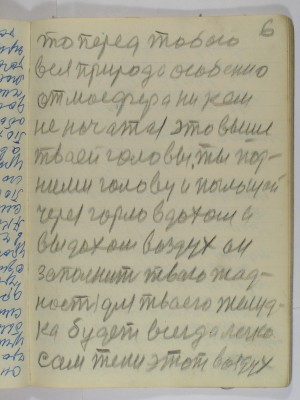 6
то перед тобою
вся природа особенно
отмосфера ни кем
не початая это выше
твоей головы, ты под-
ними голову и поглощай
через горло вдохом и
выдохом воздух он
заполнит твою жад-
ность для твоего желуд-
ка будет всегда легко
сам тяни этот воздух